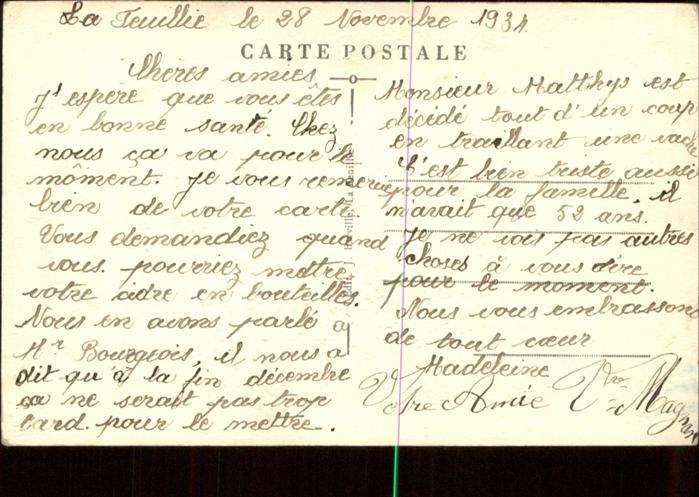 La Feuillie le 28 Novembre 1934.
CARTE POSTALE
Chères amies
J'espère que vous êtes
en bonne santé. Chez
nous ça va pour le
môment. Je vous remercie
bien de votre carte
Vous demandiez quand
vous pourriez mettre
votre cidre en bouteilles.
Nous en avons parlé à
Mr Bourgeois, il nous a
dit qu'à la fin décembre
ça ne serait pas trop
tard pour le mettre.
Monsieur Matthys est
décédé tout d'un coup
en traillant une vache
C'est bien triste aussi
pour la famille. il
n'avait que 52 ans.
Je ne vois pas autres
choses à vous dire
pour le moment.
Nous vous embrassons
de tout cœur
Madeleine
Votre Amie Vve Magnier